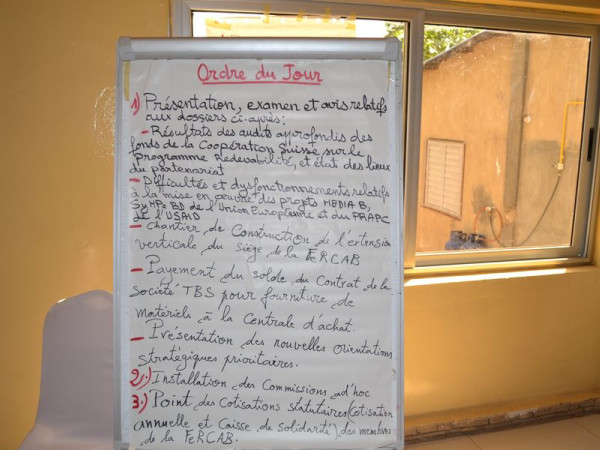 Ordre du Jour
1) Présentation, examen et avis relatifs
aux dossiers ci-après:
- Résultats des audits approfondis des
fonds de la Coopération Suisse sur le
Programme Redevabilité, et état des lieux
du partenariat
- Difficultés et dysfonctionnements relatifs
à la mise en œuvre des projets MEDIA B,
SyMPo BD de l'Union Européenne et du PRAPC
de l'USAID
- Chantier de Construction de l'extension
verticale du siège de la FERCAB
- Payement du solde du Contrat de la
Société TBS pour fourniture de
matériels à la Centrale d'achat.
- Présentation des nouvelles orientations
stratégiques prioritaires.
2.) Installation des Commissions ad'hoc
3.) Point des Cotisations statutaires (cotisation
annuelle et Caisse de solidarité) des membres
de la FeRCAB.